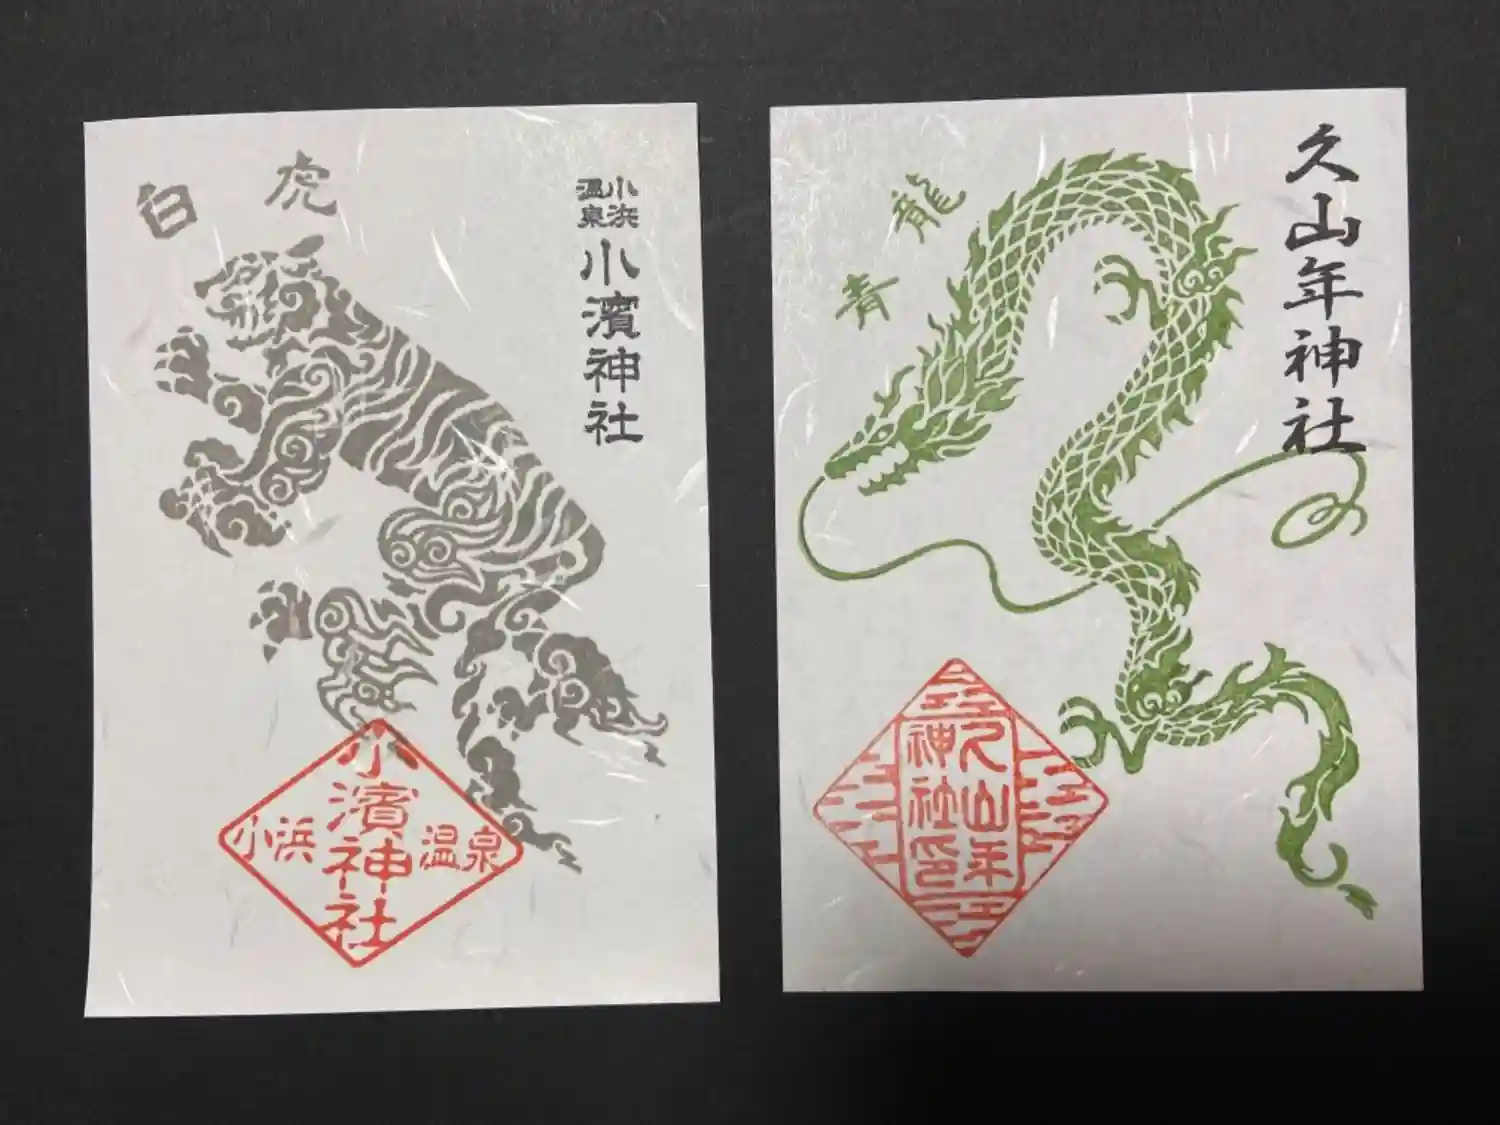 小浜
温泉
小濱神社
白虎
小濱神社
小浜
温泉
久山年神社
青龍
久山年
神社印